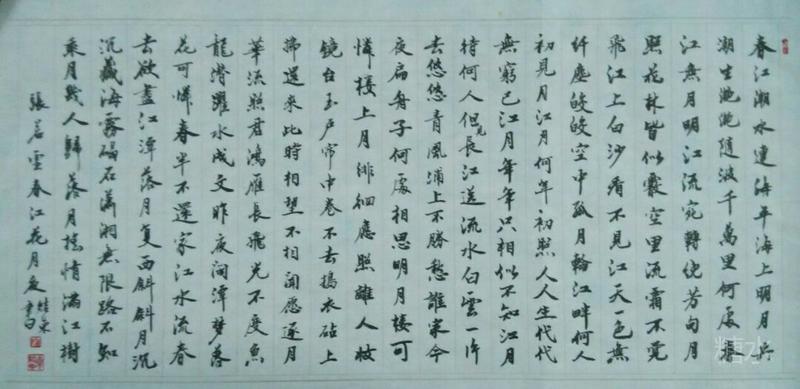 春江潮水連海平海上明月共
潮生灩灩隨波千萬里何處春
江無月明江流宛轉繞芳甸月
照花林皆似霰空里流霜不覺
飛江上白沙看不見江天一色無
纤塵皎皎空中孤月輪江畔何人
初見月江月何年初照人人生代代
無窮已江月年年只相似不知江月
待何人但見長江送流水白雲一片
去悠悠青風浦上不勝愁誰家今
夜扁舟子何處相思明月樓可
憐樓上月徘徊應照離人妝
鏡台玉戶帘中卷不去搗衣砧上
拂還來此時相望不相聞愿逐月
華流照君鴻雁長飛光不度魚
龍潛躍水成文昨夜閑潭夢落
花可憐春半不還家江水流春
去欲盡江潭落月复西斜斜月沉
沉藏海霧碣石瀟湘无限路不知
乘月幾人歸落月搖情滿江樹
張若虛春江花月夜
書
糖水